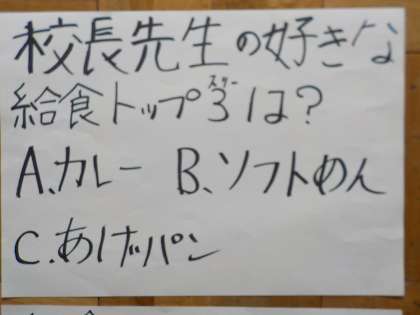 校長先生の好きな
スリー
給食トップ3は?
A.カレー B.ソフトめん
C.あげパン